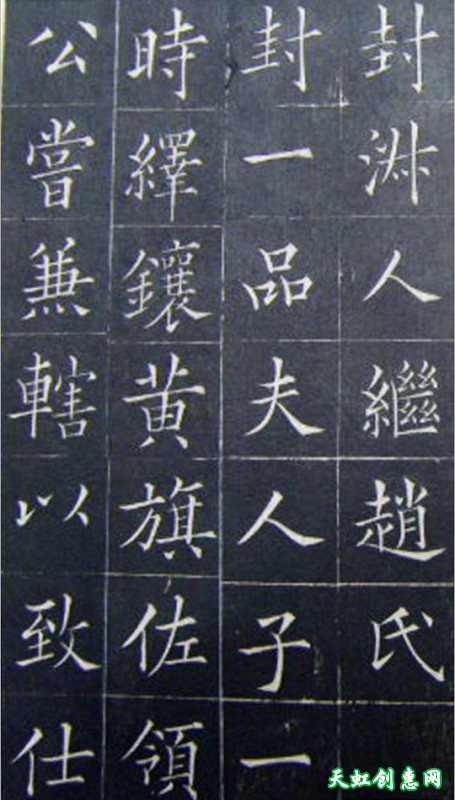 封淑人繼趙氏
封一品夫人子一
時繹鑲黃旗佐領
公嘗兼轄以致仕
天虹创惠网